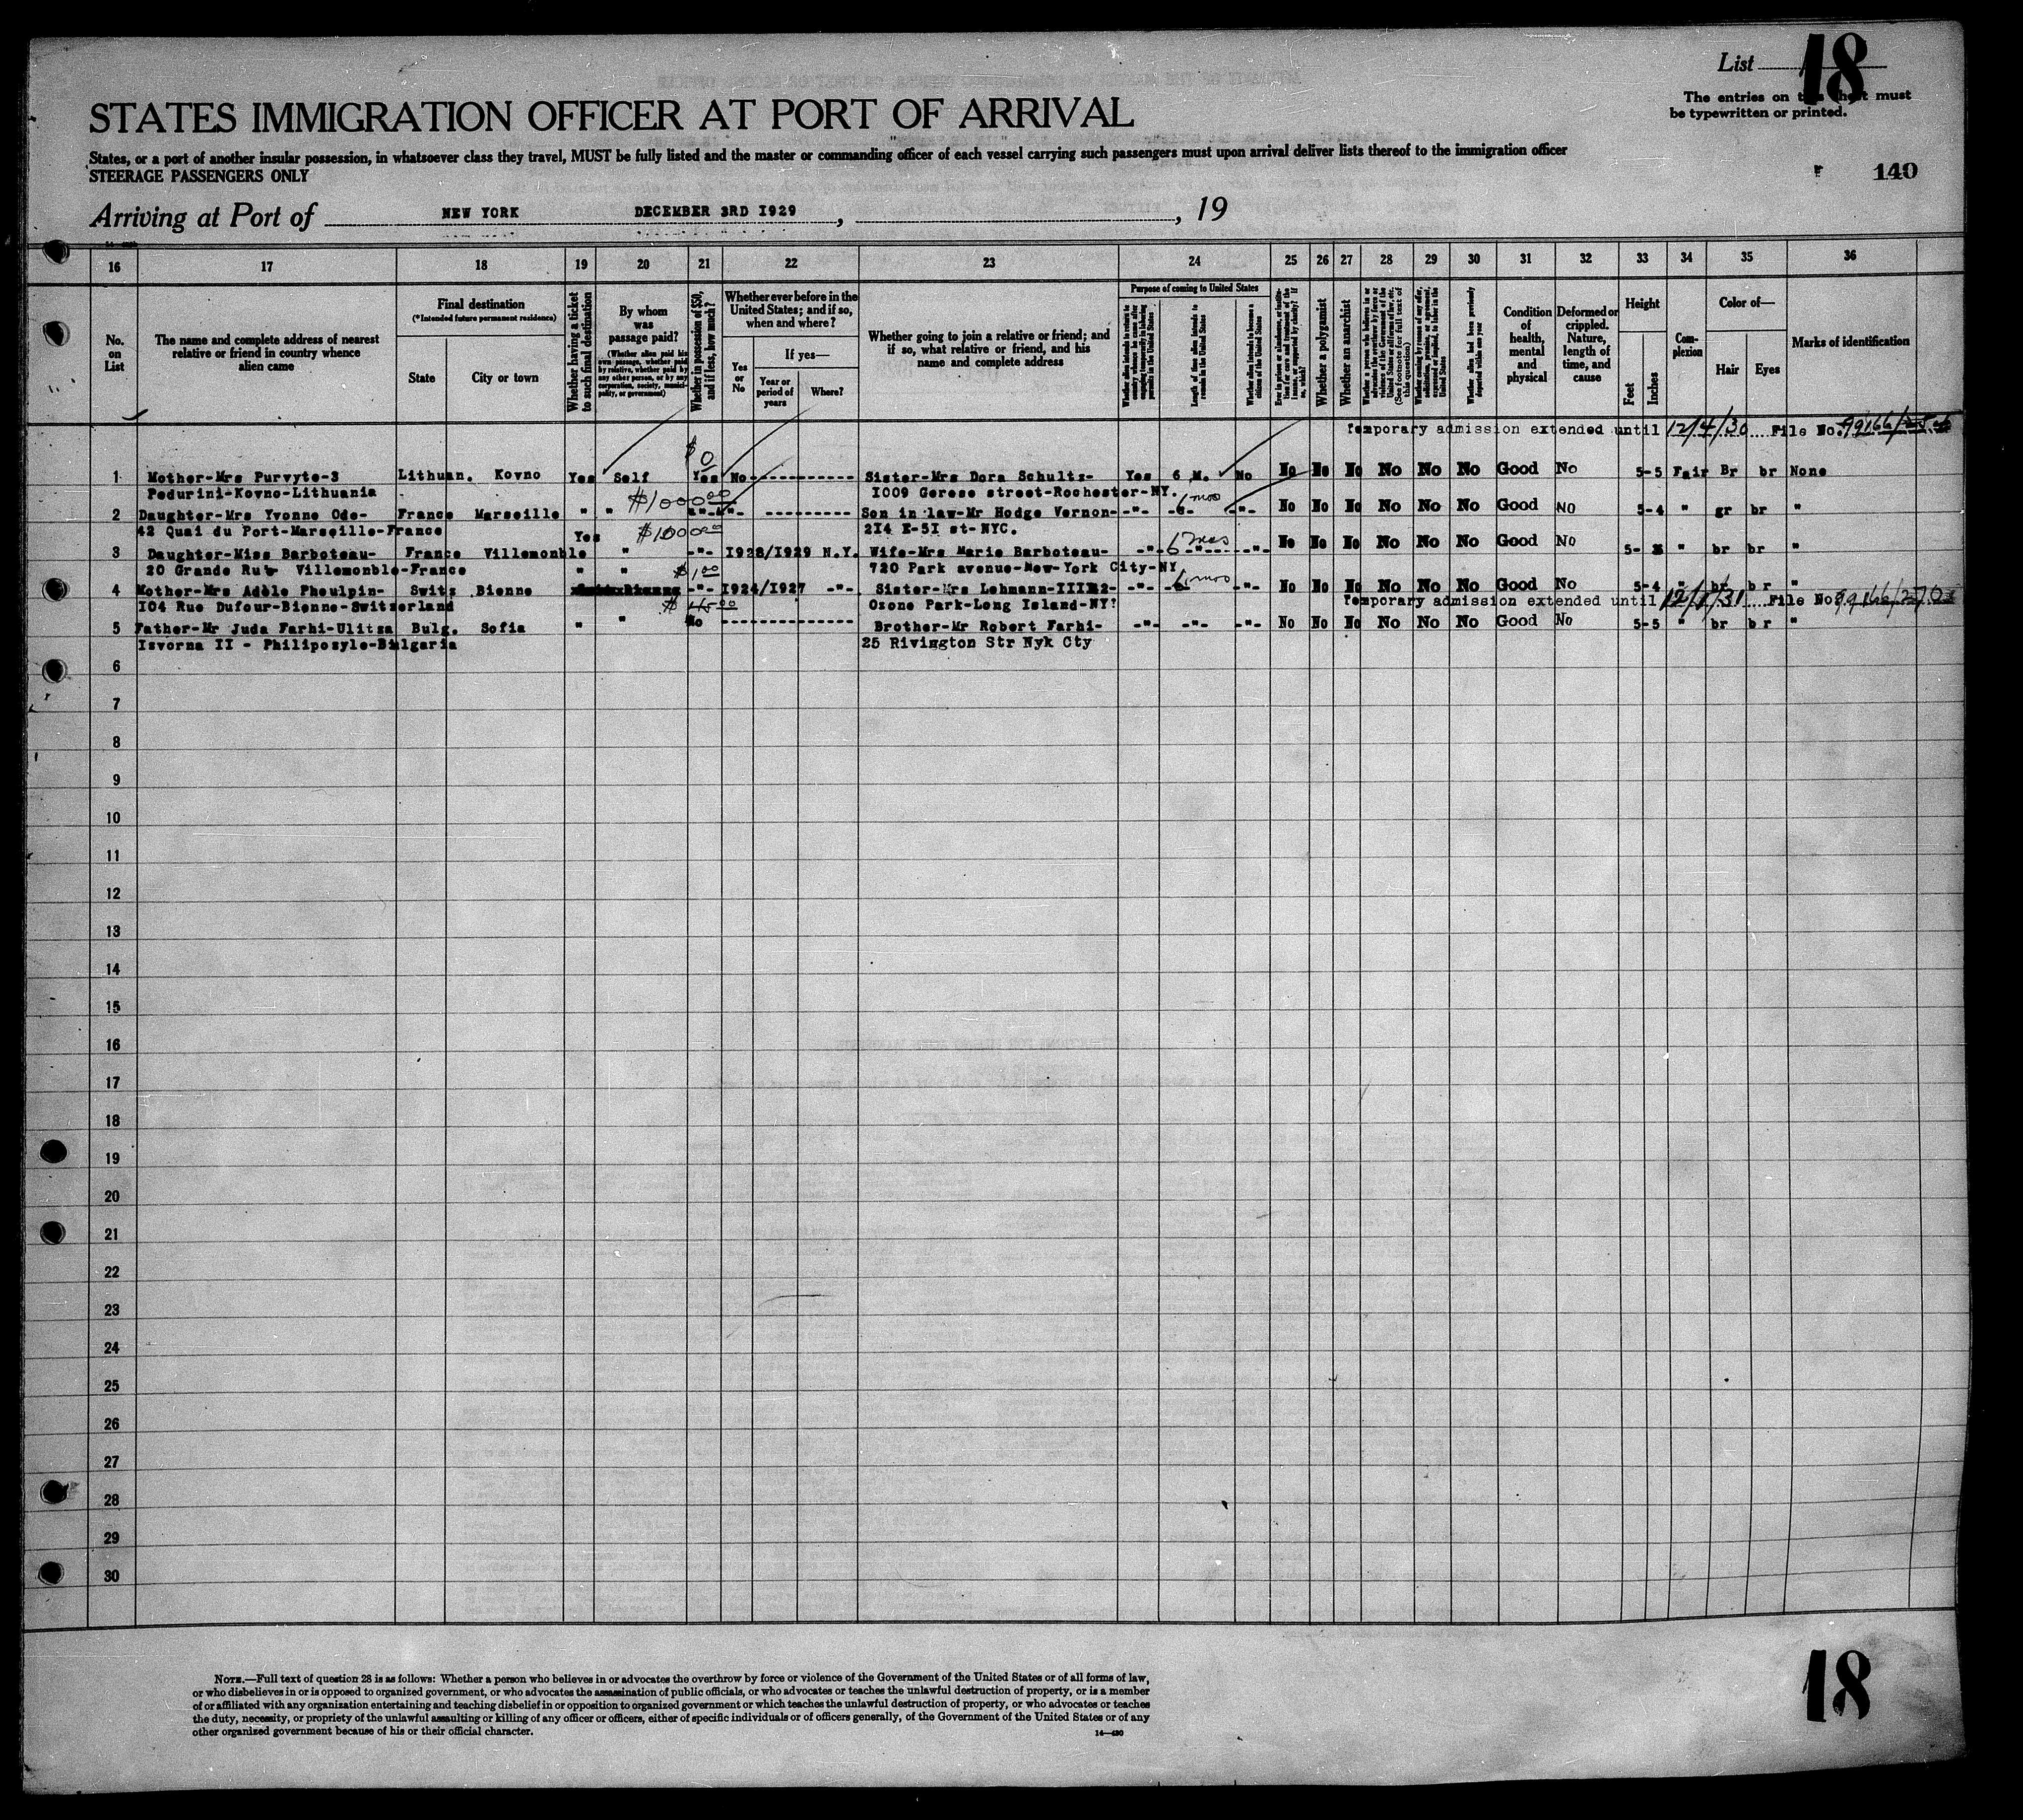 List 18
The entries on this sheet must
be typewritten or printed.
STATES IMMIGRATION OFFICER AT PORT OF ARRIVAL
States, or a port of another insular possession, in whatsoever class they travel, MUST be fully listed and the master or commanding officer of each vessel carrying such passengers must upon arrival deliver lists thereof to the immigration officer
STEERAGE PASSENGERS ONLY
140
Arriving at Port of NEW YORK DECEMBER 3RD 1929, , 19
16 17 18 19 20 21 22 23 24 25 26 27 28 29 30 31 32 33 34 35 36
No. on List
The name and complete address of nearest relative or friend in country whence alien came
Final destination
(*Intended future permanent residence)
State
City or town
Whether having a ticket to such final destination
By whom was passage paid?
(Whether alien paid his own passage, whether paid by relative, whether paid by any other person, or by any corporation, society, municipality, or government)
Whether in possession of $50, and if less, how much?
Whether ever before in the United States; and if so, when and where?
Yes or No
If yes—
Year or period of years
Where?
Whether going to join a relative or friend; and if so, what relative or friend, and his name and complete address
Purpose of coming to United States
Length of time alien intends to remain in the United States
Whether alien intends to become a citizen of the United States
Whether a polygamist
Whether an anarchist
Condition of health, mental and physical
Deformed or crippled. Nature, length of time, and cause
Height
Feet
Inches
Complexion
Color of—
Hair
Eyes
Marks of identification
Temporary admission extended until 12/4/30 File No. 99166/
1 Mother-Mrs Purvyte-3 Lithuan. Kovno Yes Self $0 Yes No ----------- Sister-Mrs Dora Schultz- Yes 6 M. No No No No No No No Good No 5-5 Fair Br br None
Pedurini-Kovno-Lithuania $100000 1009 Gerese street-Rochester-NY. 6 mos
2 Daughter-Mrs Yvonne Ode- France Marseille " " -"- -"- ---------- Son in law-Mr Hodge Vernon- -"- -6- -"- No No No No No No Good NO 5-4 " gr br "
42 Quai du Port-Marseille-France Yes $10000 214 E-51 st-NYC.
3 Daughter-Miss Barboteau- France Villemonble " -"- 1928/1929 N.Y. Wife-Mrs Marie Barboteau- -"- 6 mos -"- No No No No No No Good No 5- " br br "
20 Grande Rue Villemonble-France " " 720 Park avenue-New-York City-NY 6 mos
4 Mother-Mrs Adèle Pheulpin- Switz Bienne -"- 1924/1927 -"- Sister-Mrs Lehmann-IIII2- -"- -"- No No No No No No Good No 5-4 " br br "
104 Rue Dufour-Bienne-Switzerland $ 4500 Ozone Park-Long Island-NY! Temporary admission extended until 12/1/31 File No.
5 Father-Mr Juda Farhi-Ulitza Bulg. Sofia " " No -------------- Brother-Mr Robert Farhi- -"- -"- -"- No No No No No No Good No 5-5 " br br "
Isvorna II - Philipopyle-Bulgaria 25 Rivington Str Nyk Cty
6
7
8
9
10
11
12
13
14
15
16
17
18
19
20
21
22
23
24
25
26
27
28
29
30
NOTE.—Full text of question 28 is as follows: Whether a person who believes in or advocates the overthrow by force or violence of the Government of the United States or of all forms of law,
or who disbelieves in or is opposed to organized government, or who advocates the assassination of public officials, or who advocates or teaches the unlawful destruction of property, or is a member
of or affiliated with any organization entertaining and teaching disbelief in or opposition to organized government or which teaches the unlawful destruction of property, or who advocates or teaches
the duty, necessity, or propriety of the unlawful assaulting or killing of any officer or officers, either of specific individuals or of officers generally, of the Government of the United States or of any
other organized government because of his or their official character.
14—430
18